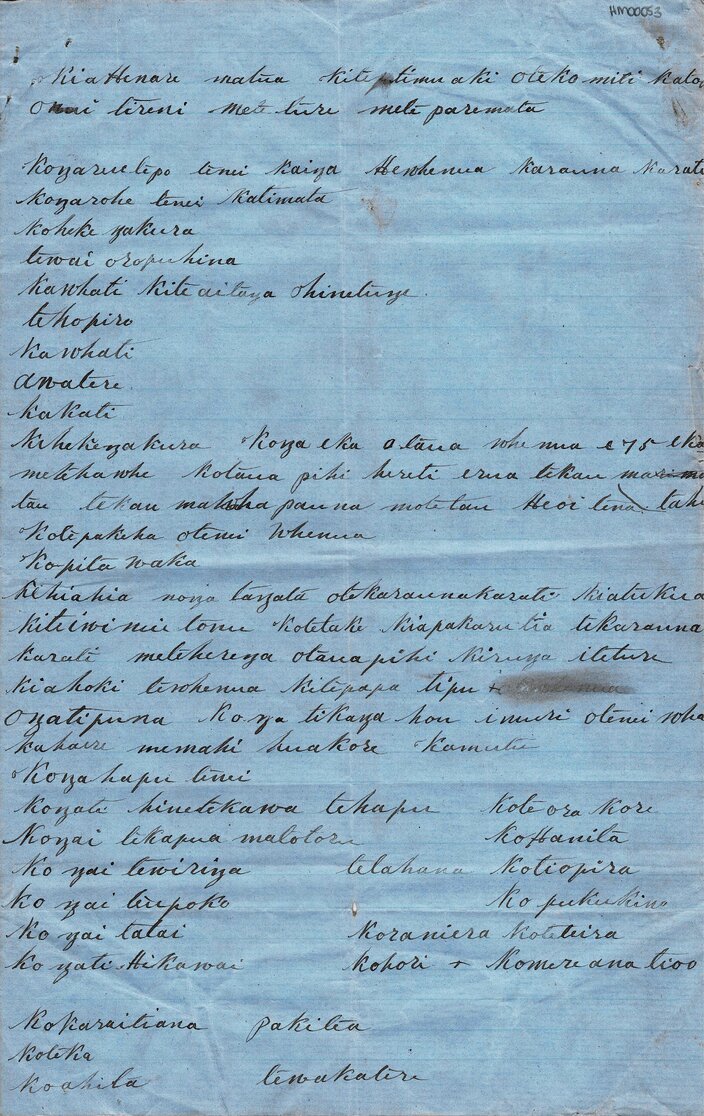 HM00053
Kia Henare matua kite timuaki oteko miti katoa
o niu tireni mete ture mete paremata
Kongaruetepo tenei kainga Hewhenua Karauna Karati
Kongarohe tenei Katimata
Koheke ngakura
tewai oropuhina
Kawhati Kiteaitanga Ohinetunge.
tehopiro
Ka whati
awatere
kakati
Kihekengakura Konga eka otana whenua e 75 eka
metehawhe Kotana pihi hereti erua tekau
tau tekau mawha pauna motetau Heoi tena
Kotepakeha otenei Whenua
Ko pita waka
Kehiahia nonga tangata oteKaraunakarati Kiatukua
Kiteiwi nui tonu Kotetake Kiapakarutia tekarauna
Karati meteherenga otanapihi Kirunga iteture
Kiahoki tewhenua Kitepapa tipu
Ongatipuna Konga tikanga hou imuri otenei wha
kahaere memahi huakore Kamutu
Kongahapu tenei
Kongati hinetekawa tehapu Kote ora Kore
Kongai tekapua matotoru KoHanita
Ko ngai tewiringa telahana Kotiopira
Ko ngai teupoko Ko pukukino
Ko ngai tatai Koraniera Koteteira
Ko ngati Hikawai Kohori + Komereanatioo
Kokaraitiana pakitea
Koteka
Koahita tewakatere